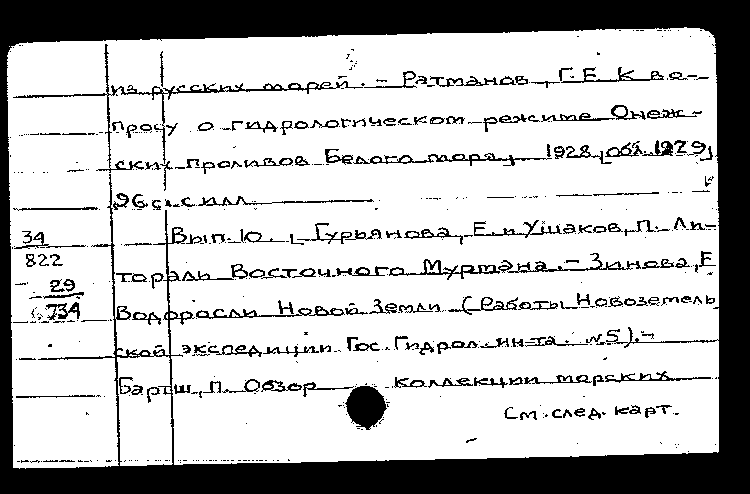 из русских морей. – Ратманов, Г.Е. К во-
просу о гидрологическом режиме Онеж-
ских проливов Белого моря, 1928 [обл. 1929],
96 с. с илл.
34 Вып. 10., Гурьянова, Е. и Ушаков, П. Ли-
822 тораль Восточного Мурмана. – Зинова, Е
29 Водоросли Новой Земли (Работы Новоземель
734 ской экспедиции Гос. Гидрол. ин-та. №5). –
Бартш, П. Обзор коллекции морских
См. след. карт.